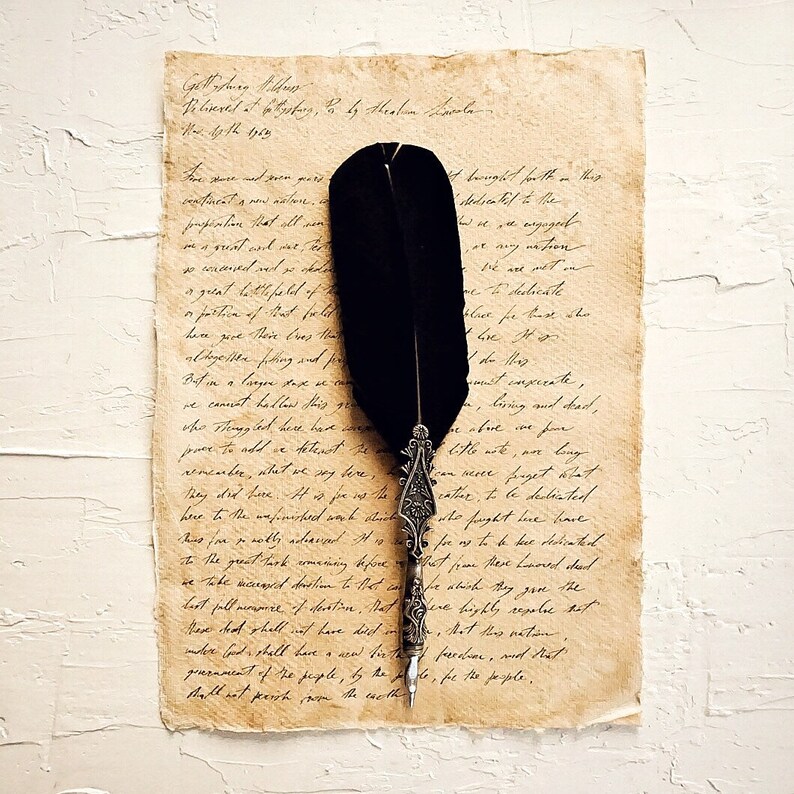 Gettysburg Address
Delivered at Gettysburg, Pa by Abraham Lincoln
Nov. 19th 1963
Four score and seven years brought forth on this
continent a new nation, dedicated to the
proposition that all men we are engaged
in a great civil war, or any nation
so conceived and so We are met on
a great battlefield of to dedicate
a portion of that field place for those who
here gave their lives that live. It is
altogether fitting and do this
But in a larger sense we can consecrate,
we cannot hallow this living and dead,
who struggled here have above our poor
power to add or detract little note, nor long
remember, what we say here, can never forget what
they did here. It is for us the rather, to be dedicated
here to the unfinished work which who fought here have
thus far so nobly advanced. It is for us to be here dedicated
to the great task remaining before that from these honored dead
we take increased devotion to that for which they gave the
last full measure of devotion, that here highly resolve that
these dead shall not have died in , that this nation,
under God, shall have a new freedom, and that
government of the people, by the , for the people,
shall not perish from the earth